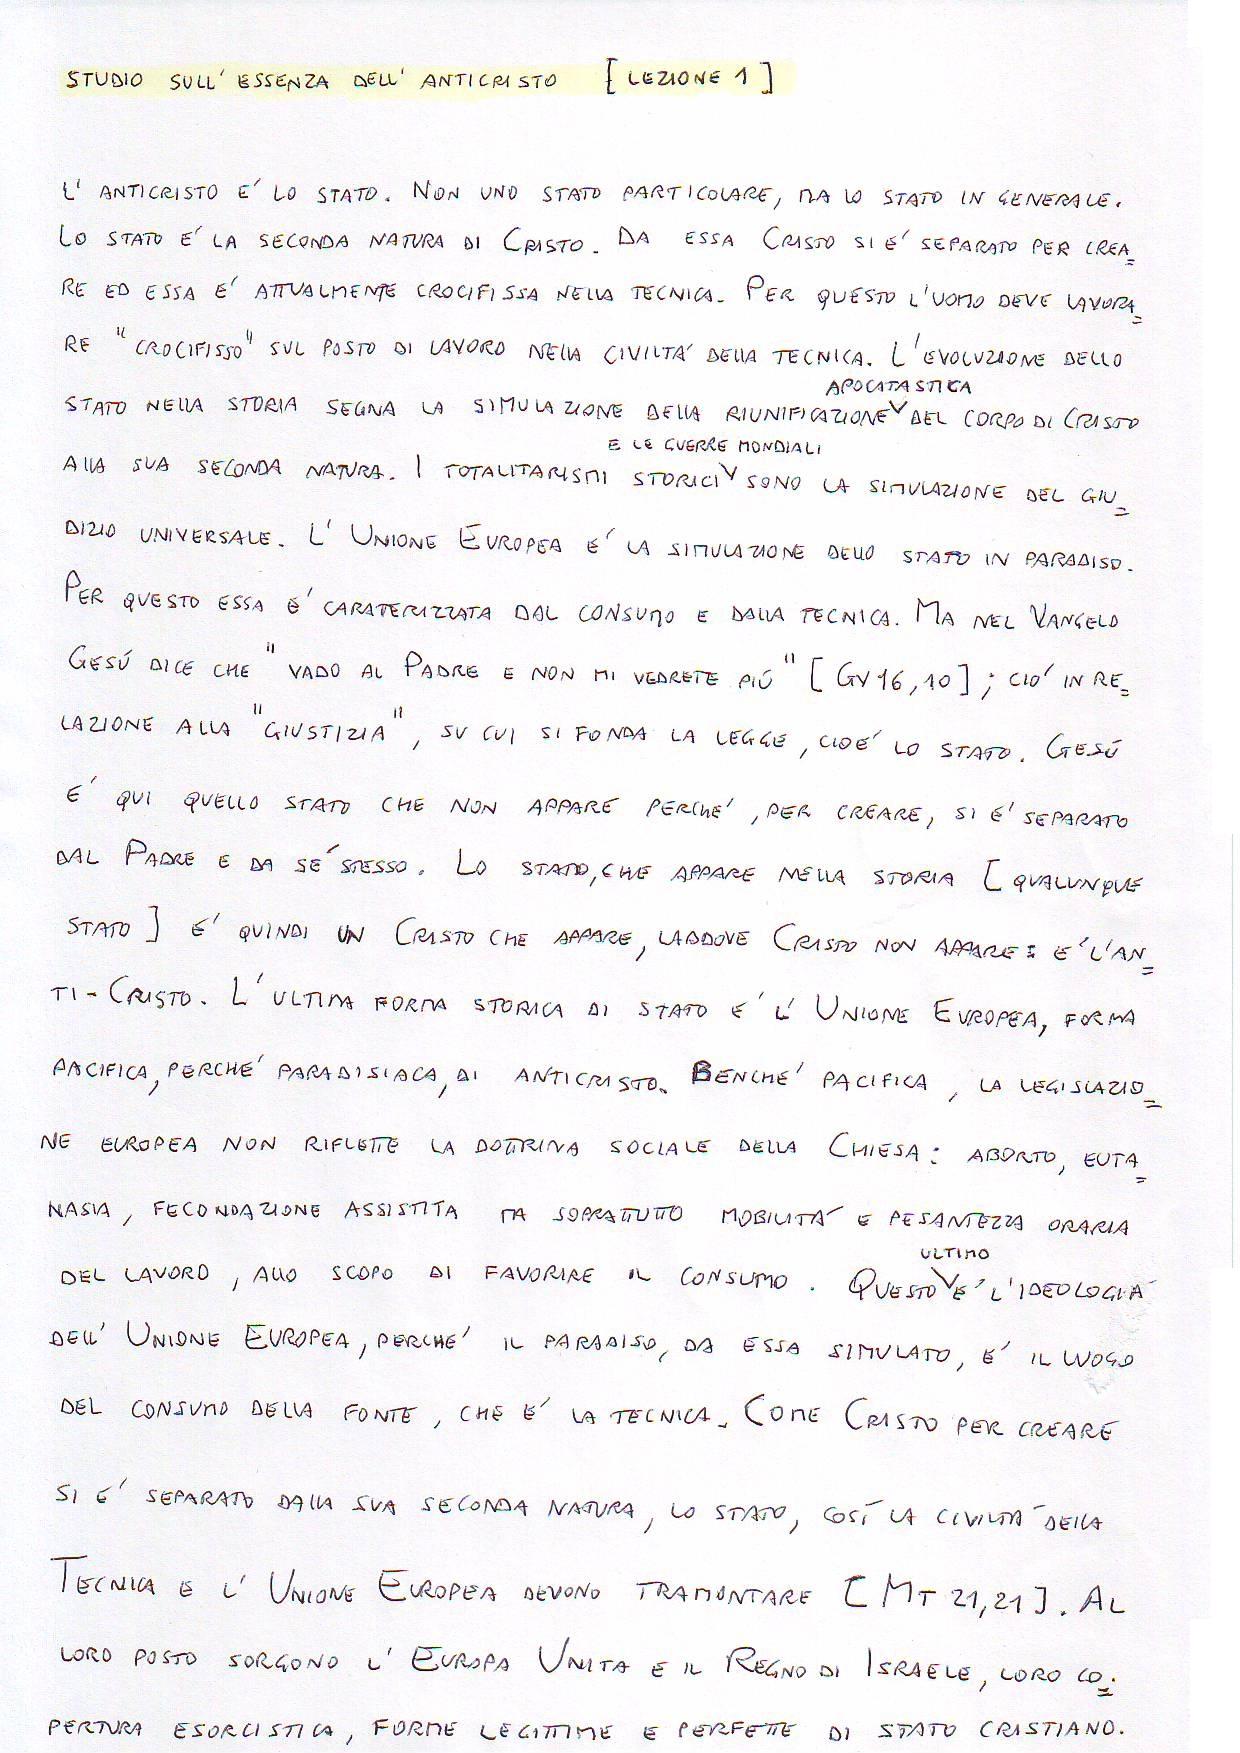 STUDIO SULL'ESSENZA DELL'ANTICRISTO [LEZIONE 1]
L'ANTICRISTO E' LO STATO. NON UNO STATO PARTICOLARE, MA LO STATO IN GENERALE.
LO STATO E' LA SECONDA NATURA DI CRISTO. DA ESSA CRISTO SI E' SEPARATO PER CREA=
RE ED ESSA E' ATTUALMENTE CROCIFISSA NELLA TECNICA. PER QUESTO L'UOMO DEVE LAVORA=
RE "CROCIFISSO" SUL POSTO DI LAVORO NELLA CIVILTA' DELLA TECNICA. L'EVOLUZIONE DELLO
APOCATASTICA
STATO NELLA STORIA SEGNA LA SIMULAZIONE DELLA RIUNIFICAZIONE DEL CORPO DI CRISTO
E LE GUERRE MONDIALI
ALLA SUA SECONDA NATURA. I TOTALITARISMI STORICI SONO LA SIMULAZIONE DEL GIU=
DIZIO UNIVERSALE. L'UNIONE EUROPEA E' LA SIMULAZIONE DELLO STATO IN PARADISO.
PER QUESTO ESSA E' CARATERIZZATA DAL CONSUMO E DALLA TECNICA. MA NEL VANGELO
GESÚ DICE CHE "VADO AL PADRE E NON MI VEDRETE PIÚ" [GV 16,10]; CIO' IN RE=
LAZIONE ALLA "GIUSTIZIA", SU CUI SI FONDA LA LEGGE, CIOE' LO STATO. GESÚ
E' QUI QUELLO STATO CHE NON APPARE PERCHE', PER CREARE, SI E' SEPARATO
DAL PADRE E DA SE' STESSO. LO STATO, CHE APPARE NELLA STORIA [QUALUNQUE
STATO] E' QUINDI UN CRISTO CHE APPARE, LADDOVE CRISTO NON APPARE: E' L'AN=
TI-CRISTO. L'ULTIMA FORMA STORICA DI STATO E' L'UNIONE EUROPEA, FORMA
PACIFICA, PERCHE' PARADISIACA, DI ANTICRISTO. BENCHE' PACIFICA, LA LEGISLAZIO=
NE EUROPEA NON RIFLETTE LA DOTTRINA SOCIALE DELLA CHIESA: ABORTO, EUTA=
NASIA, FECONDAZIONE ASSISTITA MA SOPRATUTTO MOBILITA' E PESANTEZZA ORARIA
ULTIMO
DEL LAVORO, ALLO SCOPO DI FAVORIRE IL CONSUMO. QUESTO E' L'IDEOLOGIA
DELL'UNIONE EUROPEA, PERCHE' IL PARADISO, DA ESSA SIMULATO, E' IL LUOGO
DEL CONSUMO DELLA FONTE, CHE E' LA TECNICA. COME CRISTO PER CREARE
SI E' SEPARATO DALLA SUA SECONDA NATURA, LO STATO, COSÍ LA CIVILTA' DELLA
TECNICA E L'UNIONE EUROPEA DEVONO TRAMONTARE [MT 21,21]. AL
LORO POSTO SORGONO L'EUROPA UNITA E IL REGNO DI ISRAELE, LORO CO=
PERTURA ESORCISTICA, FORME LEGITTIME E PERFETTE DI STATO CRISTIANO.